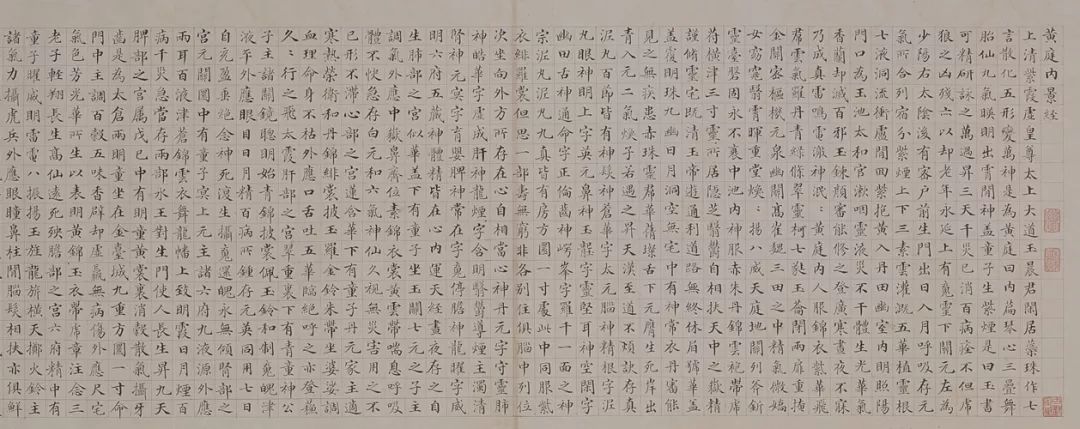 黃庭內景經
上清紫霞虛皇尊太上大道玉晨君閒居蕊珠作七
言散化五形變萬神是為黃庭曰內篇琴心三疊舞
胎仙九氣暎明出霄間神蓋童子生紫煙是曰玉書
可精研詠之萬過昇三天千災已消百病痊不但虎
狼之凶殘亦以却老年永延上有魂靈下關元左為
少陽右太陰後有密戶前生門出日入月呼吸存元
氣所合列宿分紫煙上下三素雲灌溉五華植靈根
七液洞流衝廬間迴紫抱黃入丹田幽室內明照陽
門口為玉池太和官漱咽靈液災不干體生光華氣
香蘭却滅百邪玉鍊顏審能修之登廣寒晝夜不寐
乃成真雷鳴電激神泯泯黃庭內人服錦衣紫華飛
裙雲氣羅丹青綠條翠靈柯七蕤玉籥閉兩扉重掩
金關密樞機元泉幽關高崔巍三田之中精氣微嬌
女窈窕翳霄暉重堂煥煥揚八威天庭地關列斧斤
靈臺盤固永不衰中池內神服赤珠丹錦雲袍帶虎
符橫津三寸靈所居隱芝翳鬱自相扶天中之嶽精
謹修靈宅既清玉帝遊通利道路無終休眉號華
蓋覆明珠九幽日月洞空無宅中有神常衣丹審能
見之無疾患赤珠靈裙華蒨粲舌下元膺生死岸出
青入元二氣煥子若遇之昇天漢至道不煩訣存真
泥丸百節皆有神髮神蒼華字太元腦神精根字泥
丸眼神明上字英元鼻神玉壟字靈堅耳神空閑字
幽田舌神通命字正倫齒神崿峯字羅千一面之神
宗泥丸泥丸九真皆有房方圓一寸處此中同服紫
衣緋羅裳但思一部壽無窮非各別住俱腦中列位
次坐向外方所存在心自相當心神丹元字守靈肺
神皓華字虛成肝神龍煙字含明翳鬱導煙主濁清
腎神元冥字育嬰脾神常在字魂停膽神龍曜字威
明六府五藏神體精皆在心內運天經晝夜存之自
生肺部之宮似華蓋下有童子坐玉闕七元之子主
調氣外應中嶽鼻齊位素錦衣裳黃雲帶喘息呼吸
體不快急存白元和六氣神仙久視無災害用之不
已形不滯心部之宮蓮含華下有童子丹元家主適
寒熱榮衛和丹錦緋裳披玉羅金鈴朱帶坐婆娑調
血理命身不枯外應口舌吐五華臨絕呼之亦登蘇
久久行之飛太霞肝部之宮翠重裏下有青童神公
子主諸關鏡聰明始青錦披裳佩玉鈴和制魂魄津
液平外應眼目日月精百痾所鍾存無英同用七日
自充盈垂絕念神死復生攝魂還魄永無傾腎部之
宮元闕圓中有童子冥上元主諸六府九液源外應
兩耳百液津蒼錦雲衣舞龍幡上致明霞日月煙百
病千災急當存兩部水王對生門使人長生昇九天
脾部之宮屬戊己中有明童黃裳裏消穀散氣攝牙
齒是為太倉兩明童坐在金臺城九重方圓一寸命
門中主調百穀五味香辟却虛羸無病傷外應尺宅
氣色芳光華所生以表明黃錦玉衣帶虎章注念三
老子輕翔長生高仙遠死殃膽部之宮六府精中有
童子曜威明雷電八振揚玉旌龍旂橫天擲火鈴主
諸氣力攝虎兵外應眼瞳鼻柱間腦髮相扶亦俱鮮